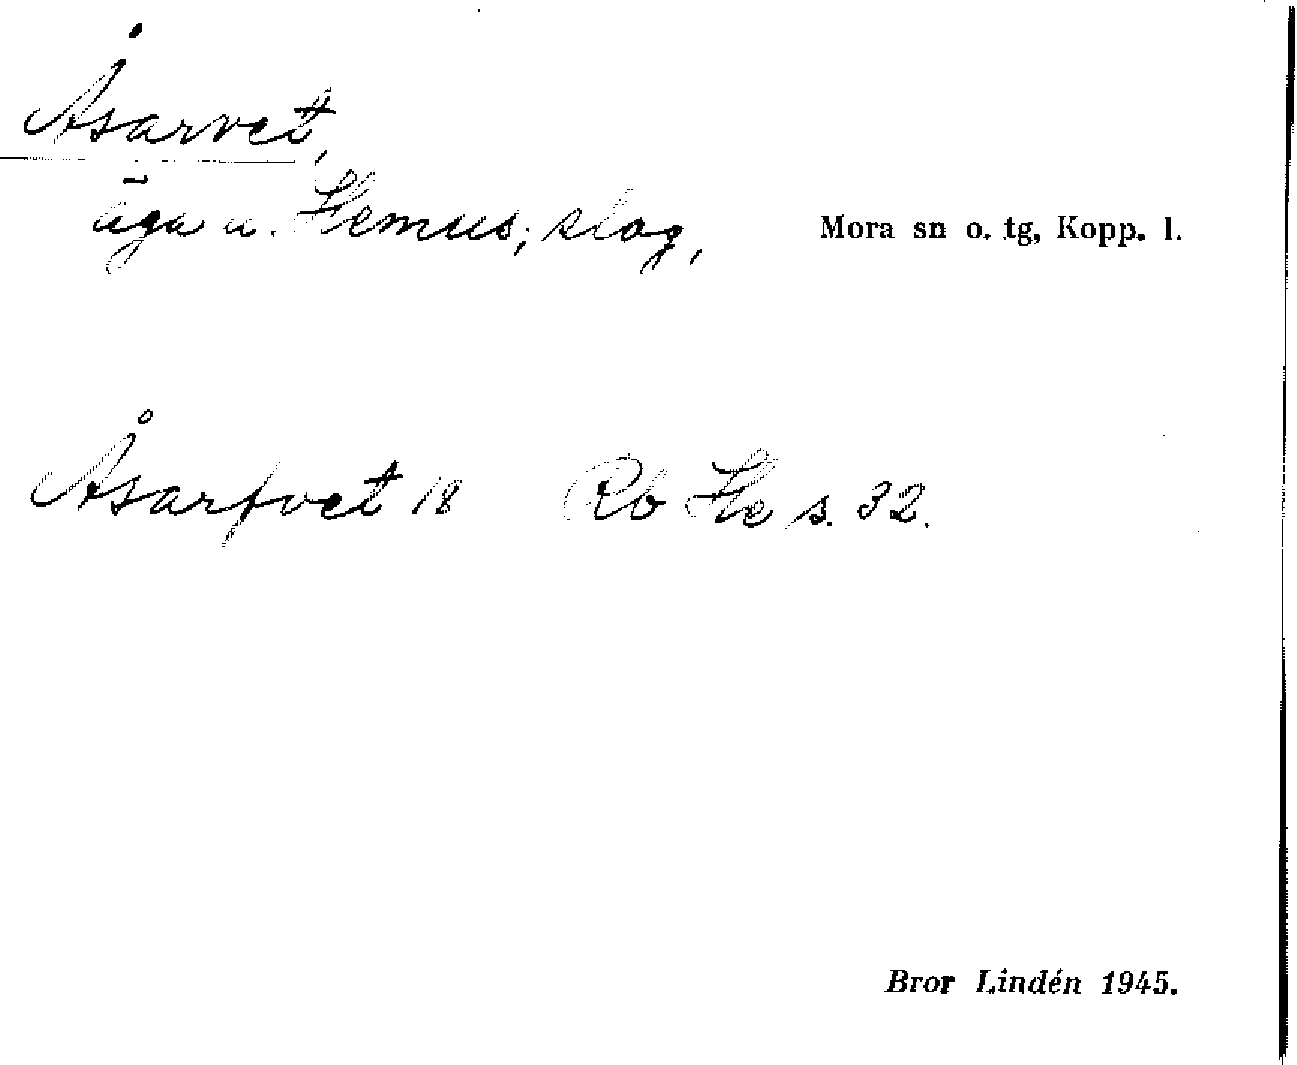 Åsarvet,
äga u. Hemus; slog, Mora sn o. tg, Kopp. l.
Åsarfvet 18 Rb He s. 32.
Bror Lindén 1945.